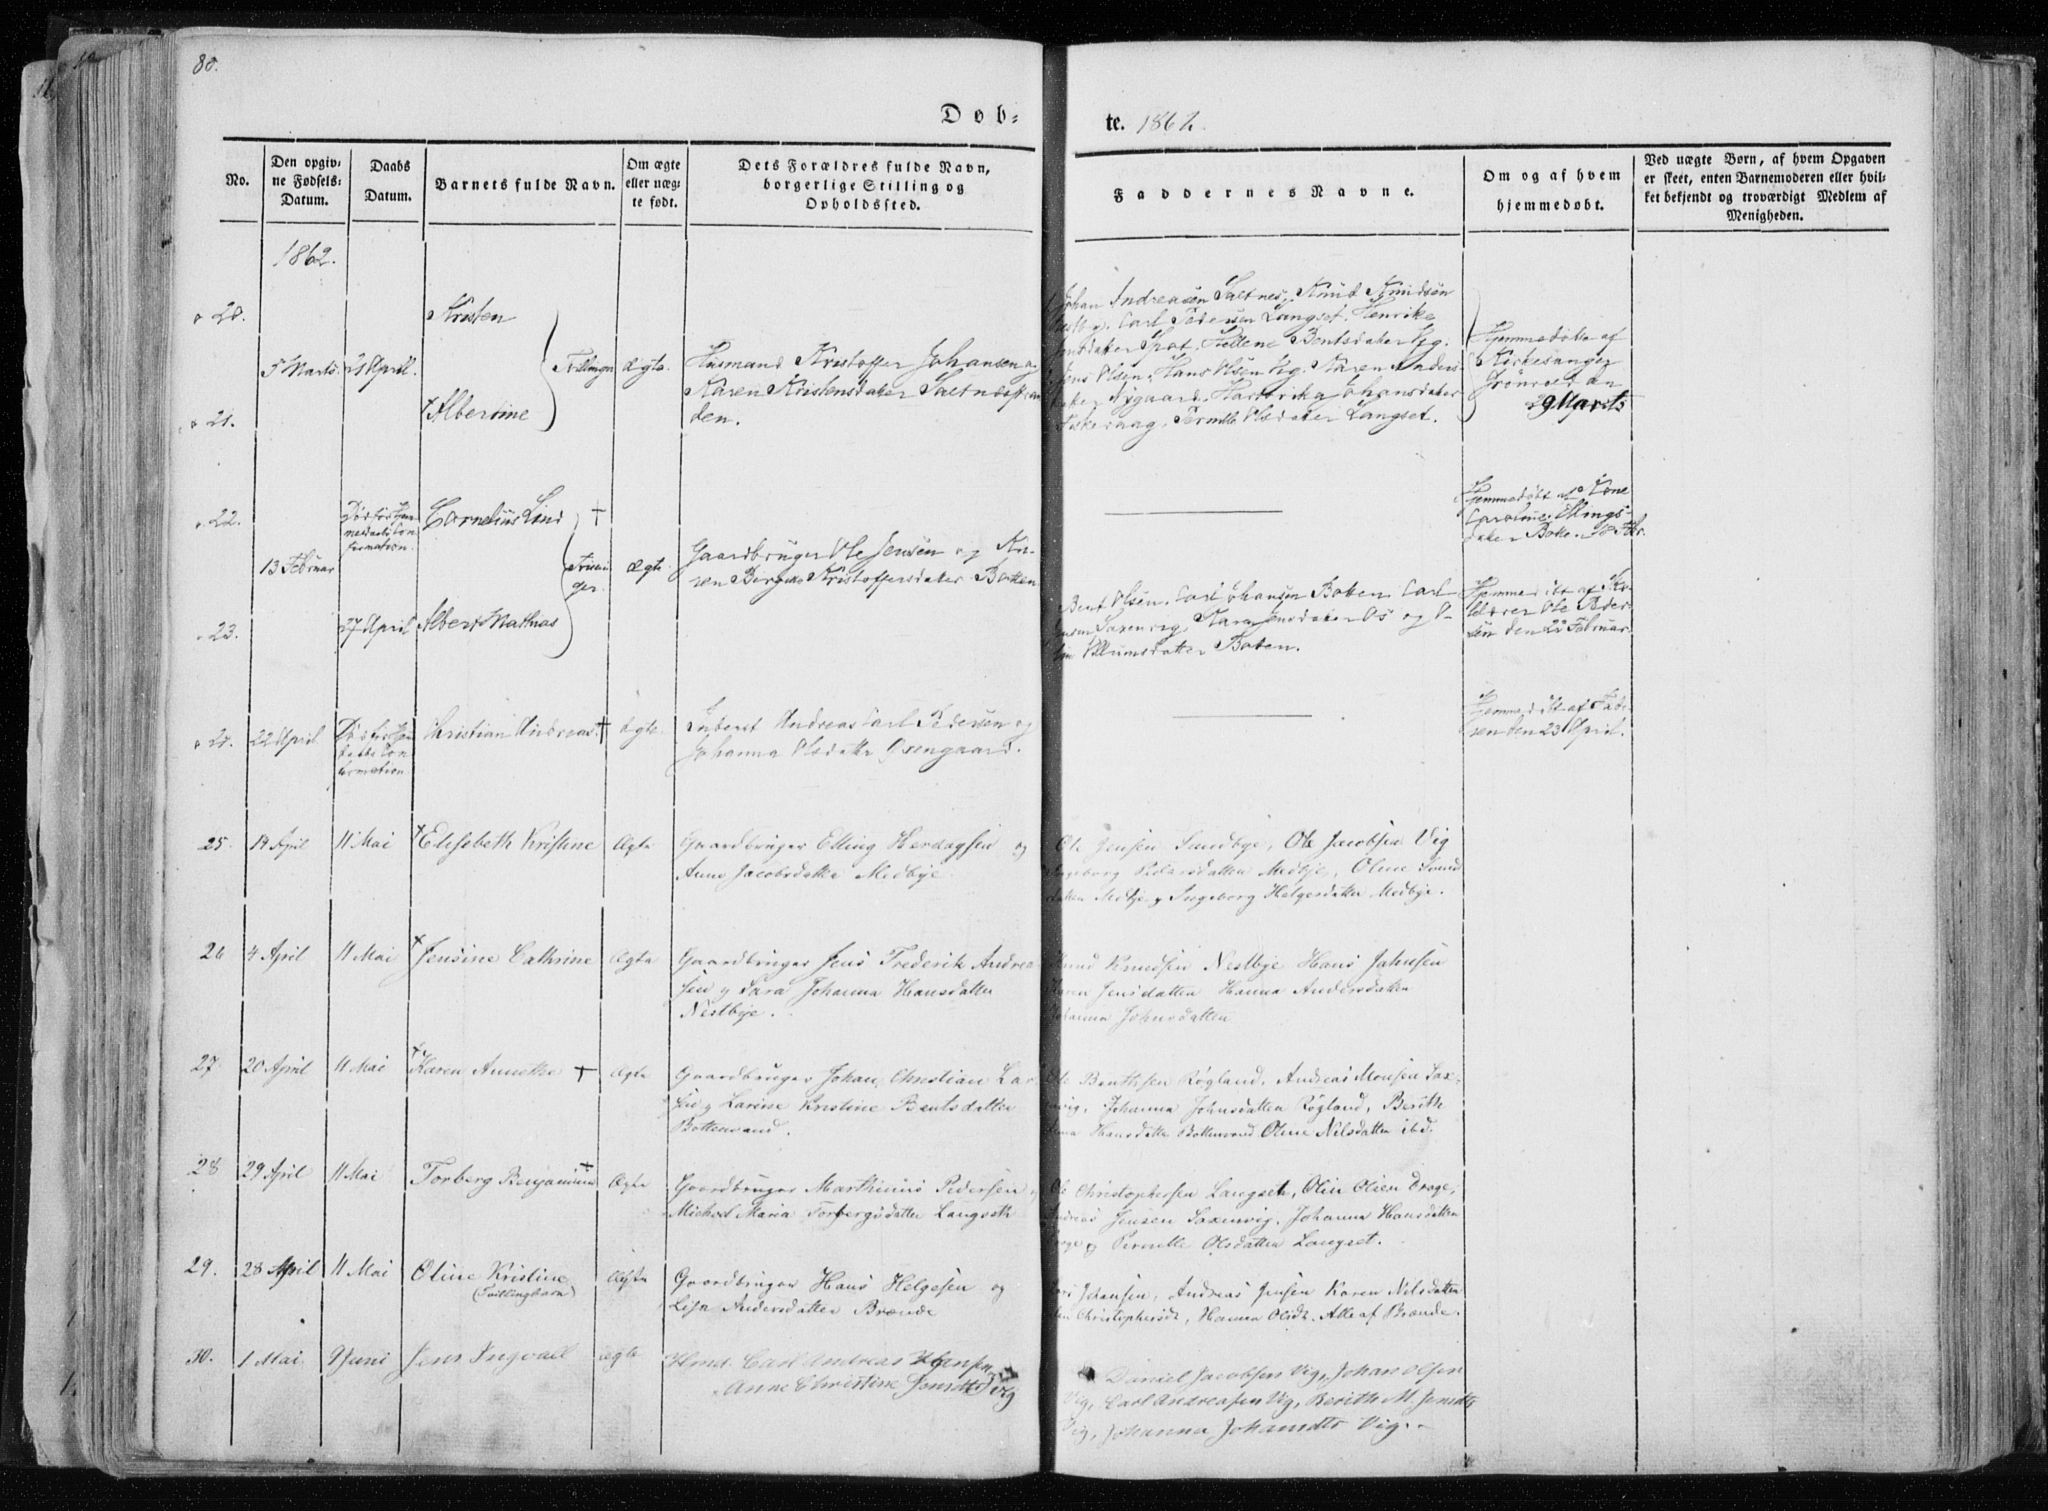 80.
Døb-
te. 1862.
No.
Den opgiv-
ne Fødsels-
Datum.
Daabs
Datum.
Barnets fulde Navn.
Om ægte
eller uæg-
te født.
Dets Forældres fulde Navn,
borgerlige Stilling og
Opholdssted.
Faddernes Navne.
Om og af hvem
hjemmedøbt.
Ved uægte Børn, af hvem Opgaven
er skeet, enten Barnemoderen eller hvil-
ket bekjendt og troværdigt Medlem af
Menigheden.
1862.
20.
Kristen
5 Marts. 21 April.
Tvillinger
Ægte.
Husmand Kristoffer Johansen og
Karen Kristensdatter Saltnesstran
den.
21.
Albertine
Johan Andreasen Saltnes, Knud Knudsen
Carl Pedersen Langset. Henrike
Bentsdatter
Jens Olsen, Hans Olsen Vig. Karen Anders-
Johansdatter
Olsdatter Langset.
Hjemmedøbte af
Kirkesanger
Grønvold den
29 Marts
22.
13 Februar
Død før Hjem-
medaabs Con-
firmation.
Cornelius Lind †
Ægte.
Gaardbruger Ole Jensen og Ka-
ren Kristoffersdatter Botten
Hjemmedøbt af Kone
Caroline Ellings-
datter
23.
27 April
Albert Mathias
Bent Olsen. Carl Johansen Boten. Carl
Jensen Saxenvig, Jensdatter Os og
datter Boten.
Hjemmedøbt af Sko-
lelærer Ole Peder-
sen den 22 Februar.
24.
22 April
Død før Hjem-
medaabs Con-
firmation
Christian Andreas †
Ægte.
Inderst Andreas Carl Pedersen og
Johanna Olsdatter Oxengaard.
Hjemmedøbt af Fade-
ren den 23 April.
25. 14 April 11 Mai Elisabeth Kristine Ægte
Gaardbruger Elling Herdagsen og
Anne Jacobsdatter Medbye
Ole Jensen Sundbye, Ole Jacobsen Vig
Ingeborg Pedersdatter Medbye, Oline
datter Medbye og Ingeborg Helgesdatter Medbye.
26 4 April 11 Mai Jensine Cathrine Ægte
Gaardbruger Jens Frederik Andrea
sen og Sara Johanna Hansdatter
Nestbye.
Knud Knudsen Nestbye Hans Johnsen
Karen Jensdatter Hanna Andersdatter
Johanna Johnsdatter
27 20 April 11 Mai Karen Annethe † Ægte
Gaardbruger Johan Christian Lar
sen og Larine Kristine Bentsdatter
Bottenvand.
Ole Benthsen Røgland, Andreas Monsen Sax-
envig, Johanna Johnsdatter Røgland, Berith
Hansdatter Bottenvand Oline Nilsdatter ibd.
28 29 April 11 Mai Torberg Benjamin † Ægte
Gaardbruger Marthinus Pedersen
Maria Torbergsdatter Langseth
Ole Christophersen Langseth, Olin Olsen Drage,
Andreas Jensen Saxenvig, Johanna Hansdatter
Drage og Pernille Olsdatter Langset.
29. 28 April 11 Mai Oline Kristine Ægte
(Tvillingbarn)
Gaardbruger Hans Helgesen og
Lisa Andersdatter Brænde
Johansen, Andreas Jensen Karen Nilsdatter
Christophersdt, Hanna Olsdt. Alle af Brænde.
30. 1 Mai 9 Juni Jens Ingvald Ægte
Hmd. Carl Andreas Hansen
Anne Christine Jensdtr Vig
Daniel Jacobsen Vig, Johan Olsen
Vig, Carl Andreasen Vig, Berith M. Jensdtr
Vig, Johanna Johansdtr Vig.